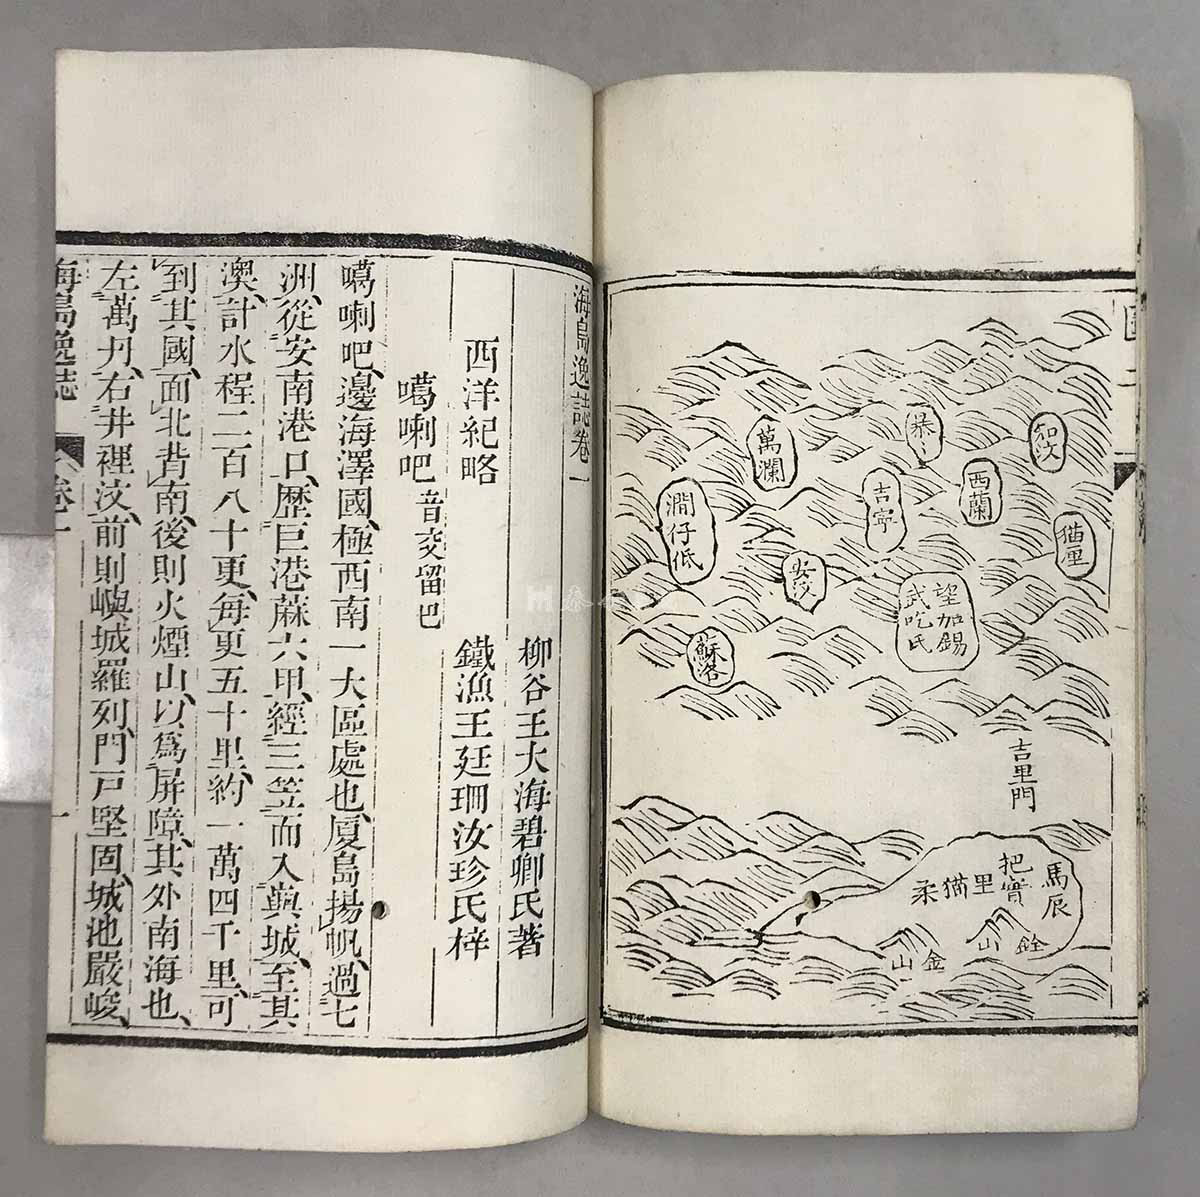 知汶
暴暴
西蘭
猫里
吉寧
萬瀾
澗仔低
望加錫
武吃氏
安汶
蘇洛
吉里門
馬辰
把實
里猫柔
銓山
金山
海島逸誌卷一
柳谷王大海碧卿氏著
西洋紀略
鐵漁王廷珊汝珍氏梓
噶喇吧音交留巴
噶喇吧、邊海澤國、極西南一大區處也、厦島揚帆、過七
洲、從安南港口、歷巨港蔴六甲、經三笠而入與城、至其
澳、計水程二百八十更、每更五十里、約一萬四千里、可
到其國、面北背南、後則火煙山、以為屏障、其外南海也、
左萬丹、右井裡汶、前則嶼城羅列、門戸堅固、城池嚴峻、
海島逸誌
卷一
一